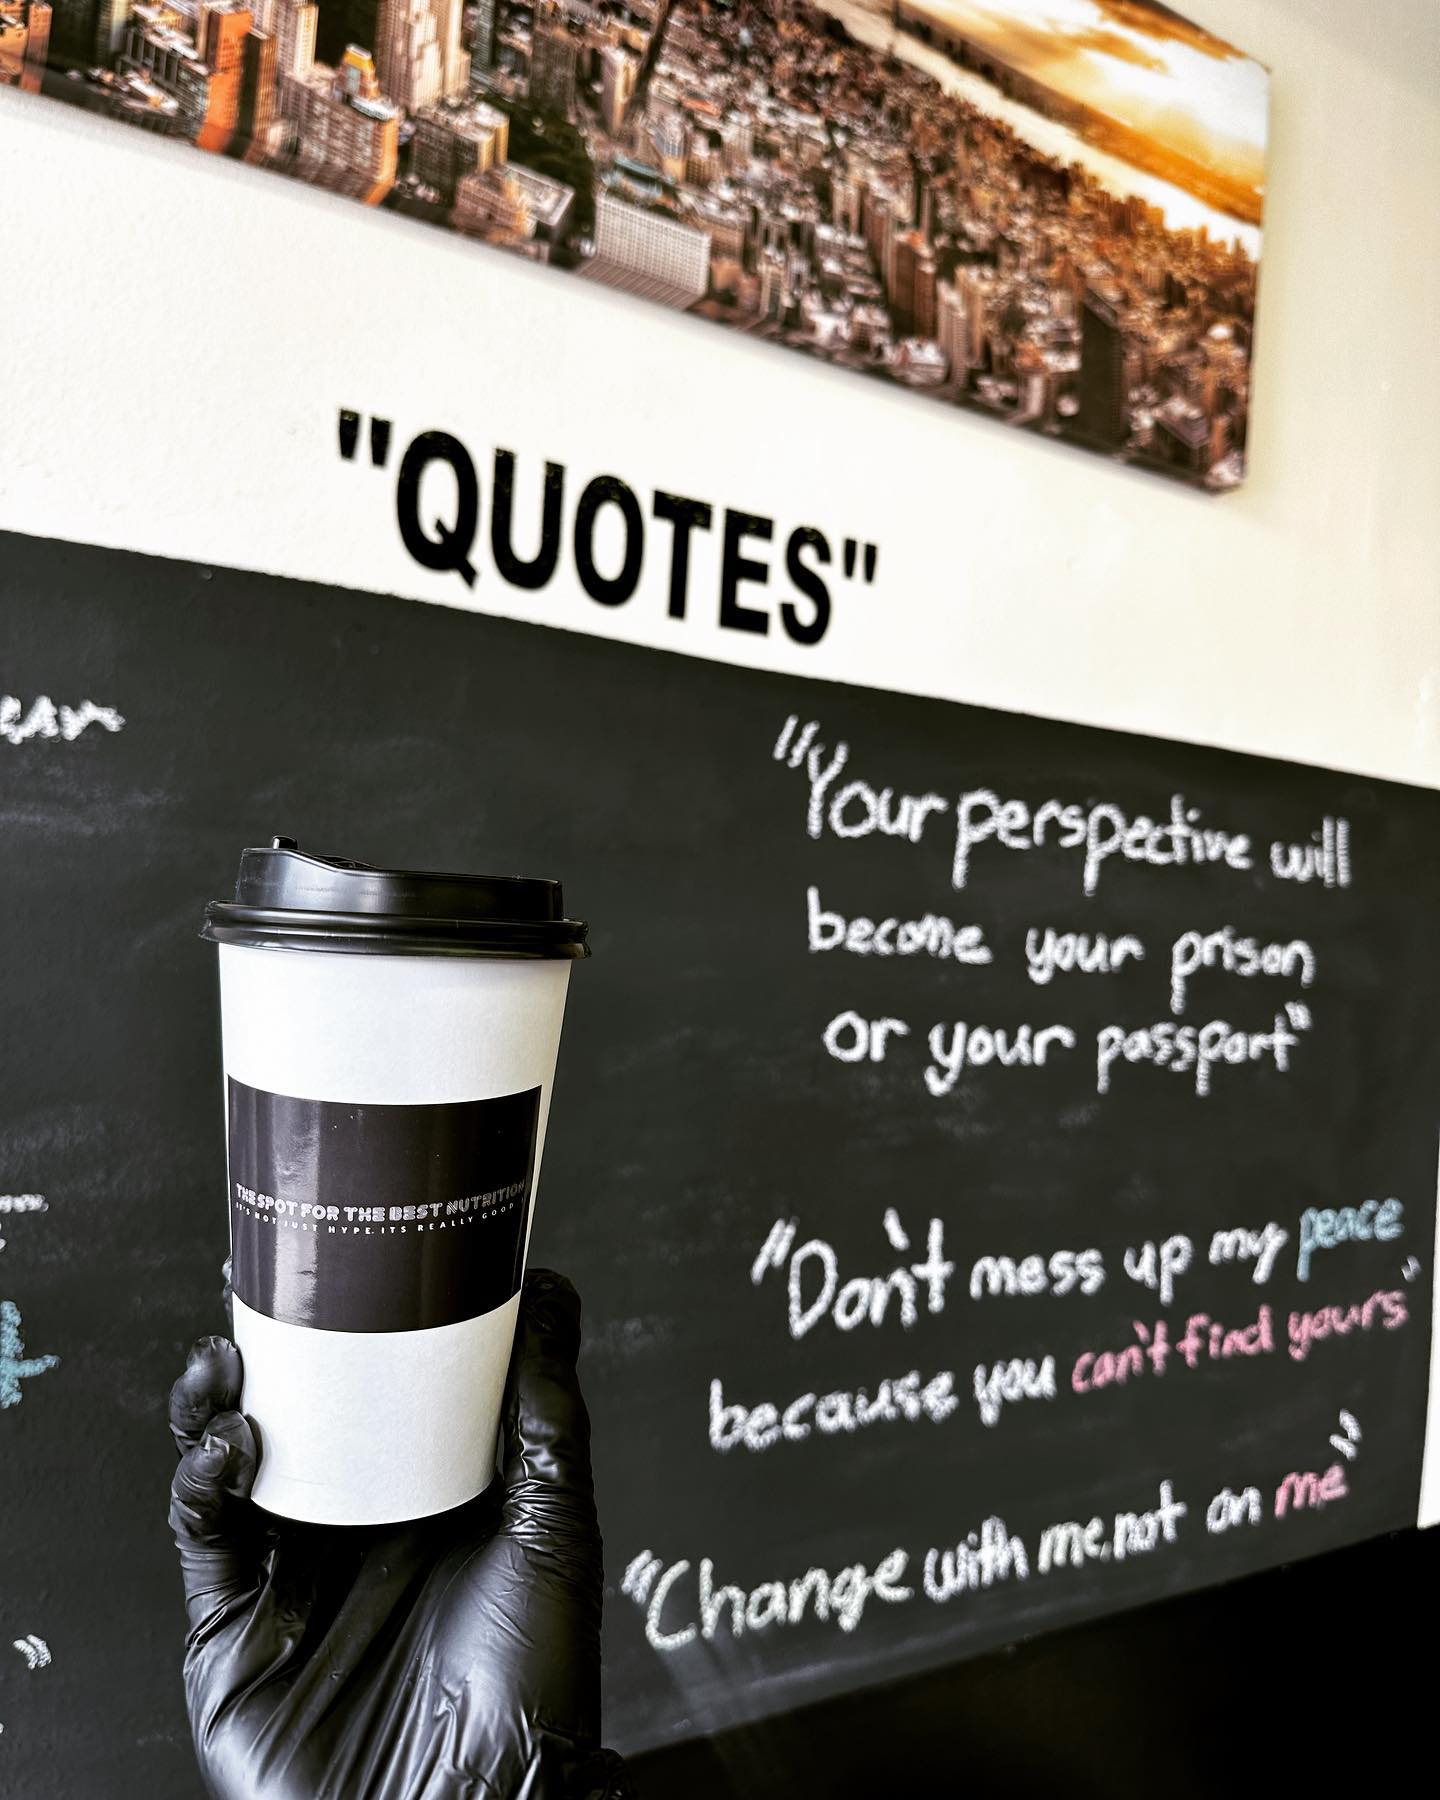 "QUOTES"
"Your perspective will
become your prison
or your passport"
"Don't mess up my peace
because you can't find yours"
"Change with me, not on me"
THE SPOT FOR THE BEST NUTRITION
IT'S NOT JUST HYPE. ITS REALLY GOOD